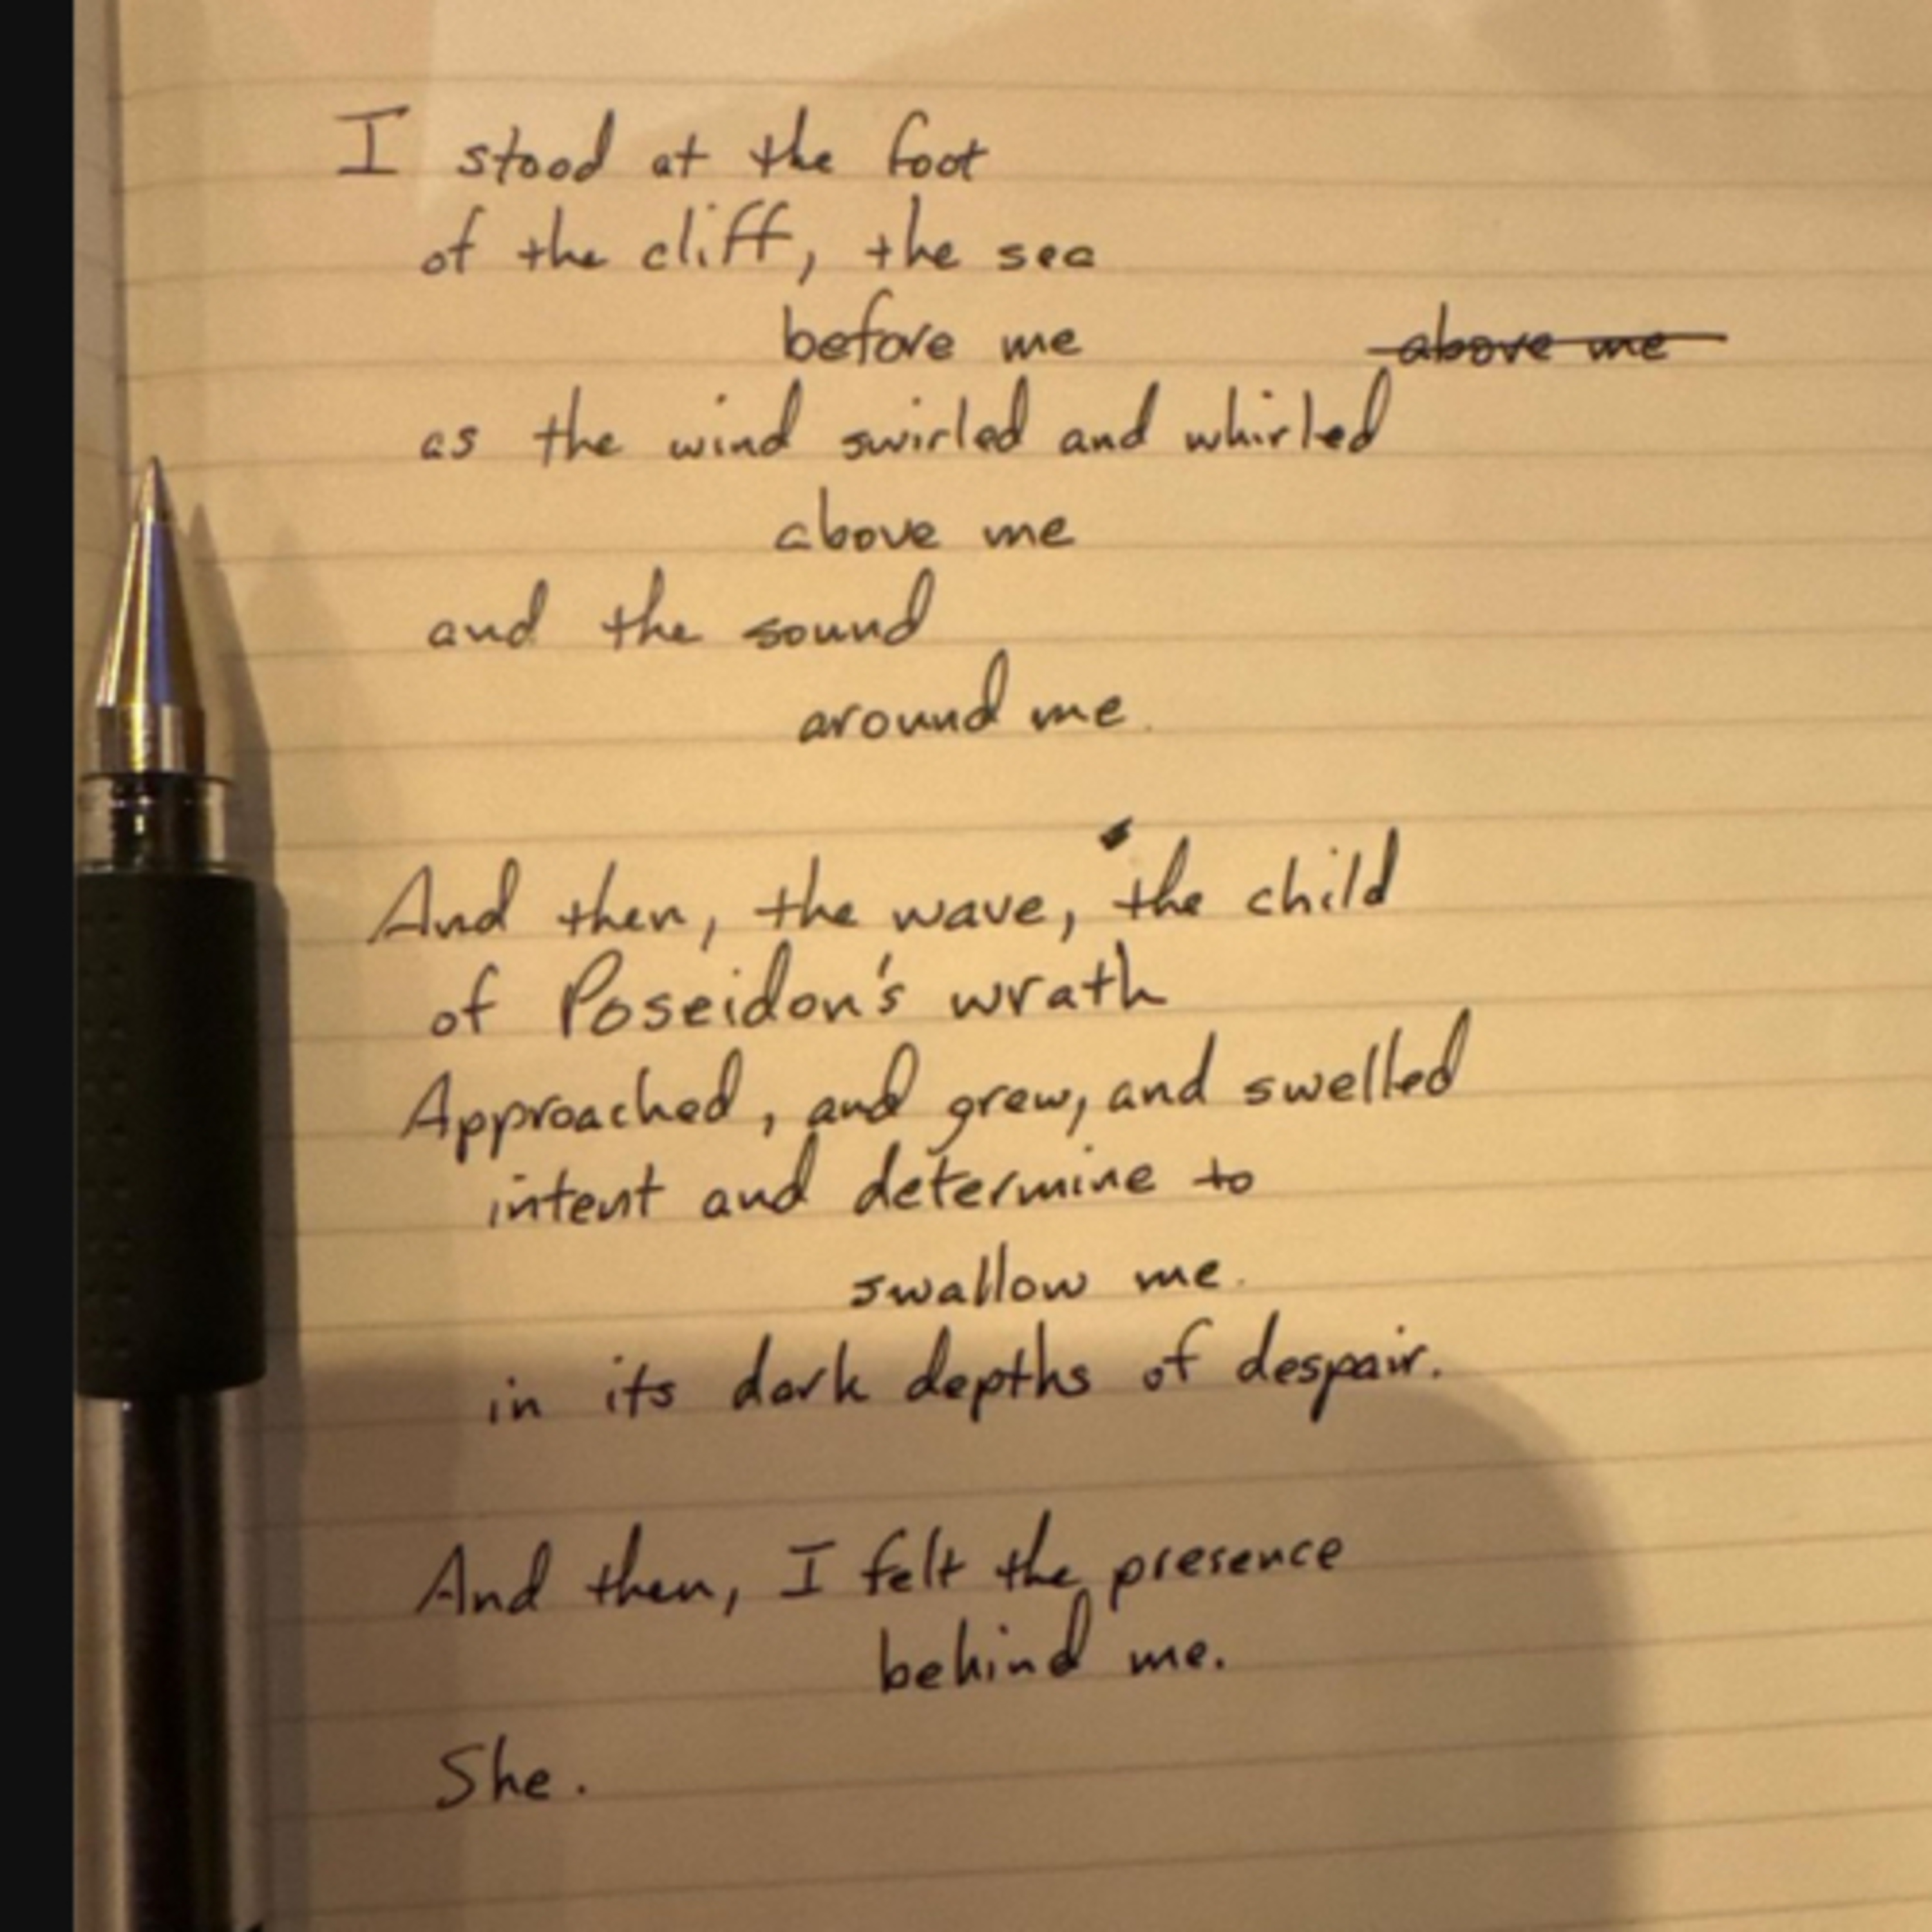 I stood at the foot
of the cliff, the sea
before me above me
as the wind swirled and whirled
above me
and the sound
around me.
And then, the wave, the child
of Poseidon's wrath
Approached, and grew, and swelled
intent and determine to
swallow me.
in its dark depths of despair.
And then, I felt the presence
behind me.
She.